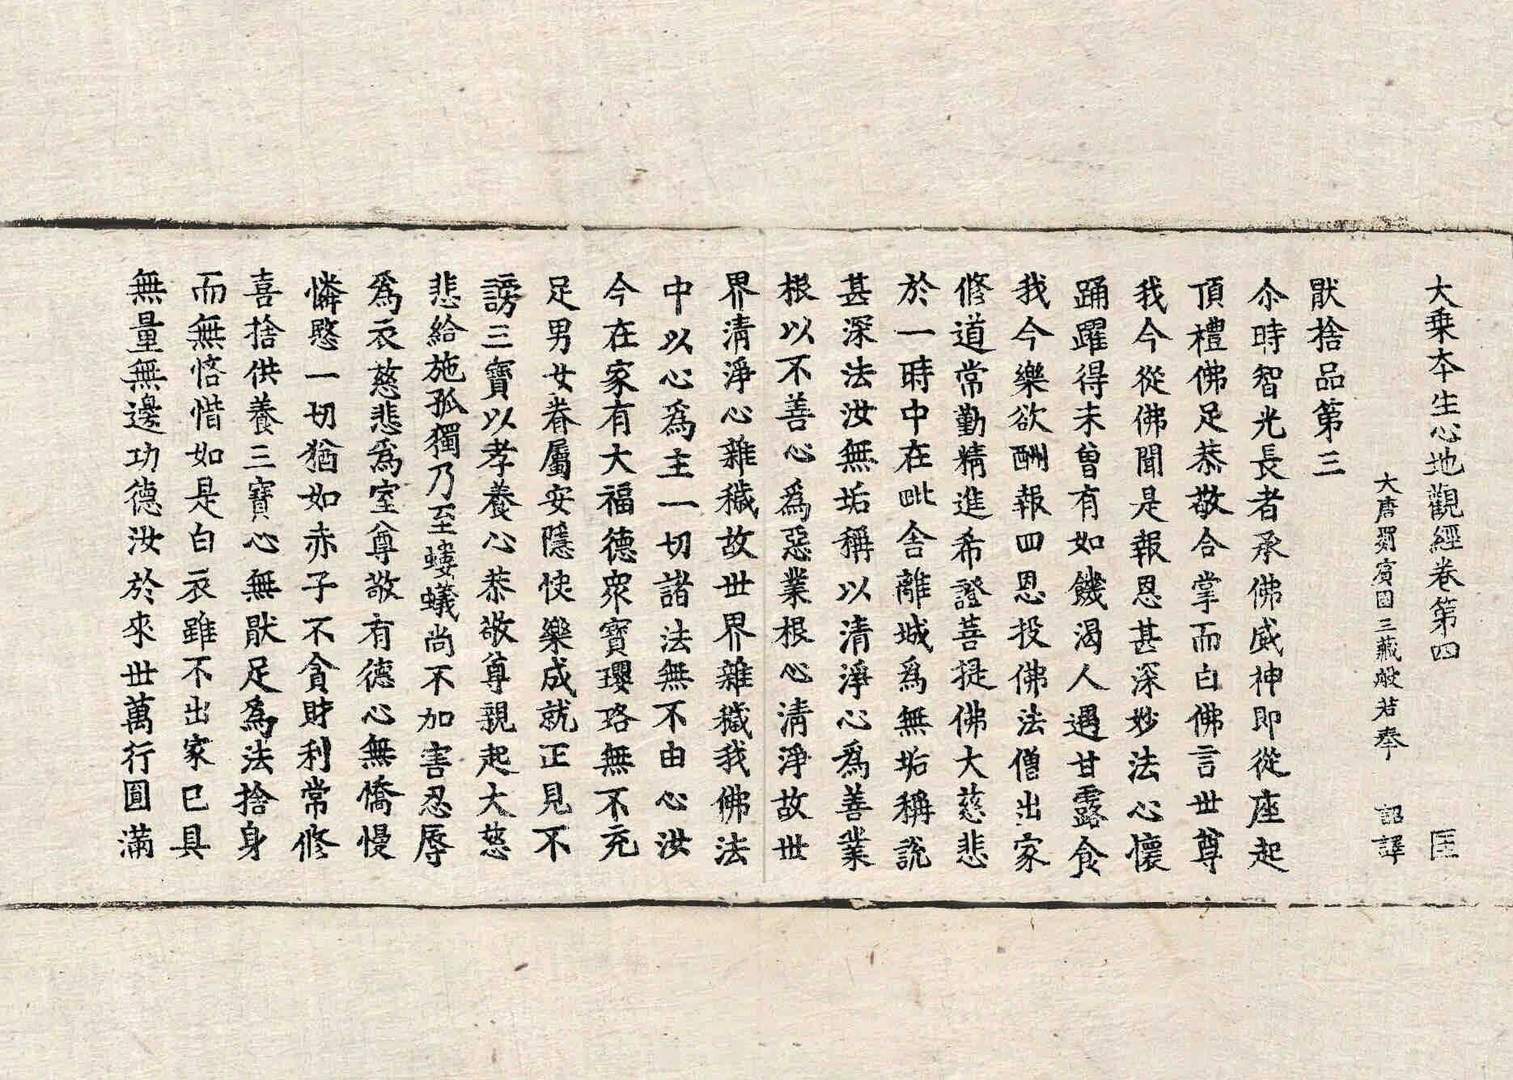 大乗本生心地觀經卷第四 匡
大唐罽賓國三藏般若奉 詔譯
猒捨品第三
尒時智光長者承佛威神即從座起
頂禮佛足恭敬合掌而白佛言世尊
我今從佛聞是報恩甚深妙法心懷
踊躍得未曾有如饑渴人遇甘露食
我今樂欲酬報四恩投佛法僧出家
修道常勤精進希證菩提佛大慈悲
於一時中在毗舍離城爲無垢稱說
甚深法汝無垢稱以清淨心爲善業
根以不善心爲惡業根心清淨故世
界清淨心雜穢故世界雜穢我佛法
中以心爲主一切諸法無不由心汝
今在家有大福德衆寶瓔珞無不充
足男女眷屬安隱快樂成就正見不
謗三寶以孝養心恭敬尊親起大慈
悲給施孤獨乃至螻蟻尚不加害忍辱
爲衣慈悲爲室尊敬有德心無憍慢
憐愍一切猶如赤子不貪財利常修
喜捨供養三寶心無猒足爲法捨身
而無悋惜如是白衣雖不出家已具
無量無邊功德汝於來世萬行圓滿